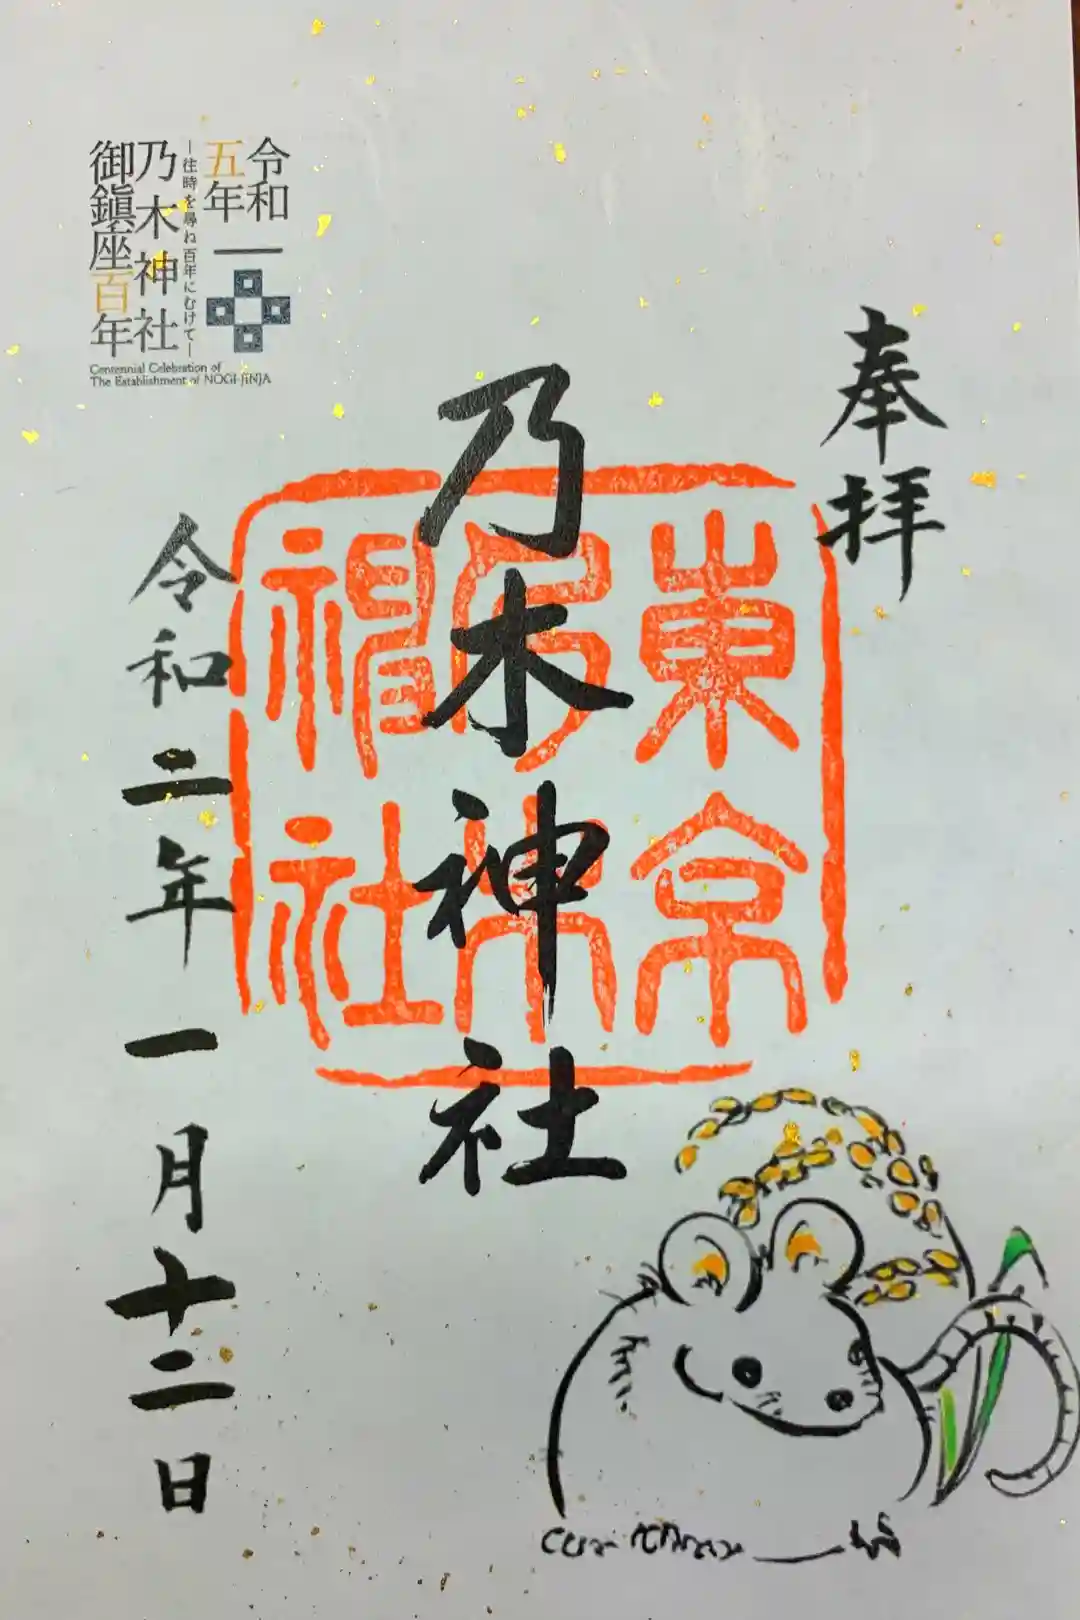 奉拝
乃木神社
東京
乃木
神社
令和二年一月十二日
令和
五年
―往時を尋ね百年にむけて―
乃木神社
御鎮座百年
Centennial Celebration of
The Establishment of NOGI-JINJA